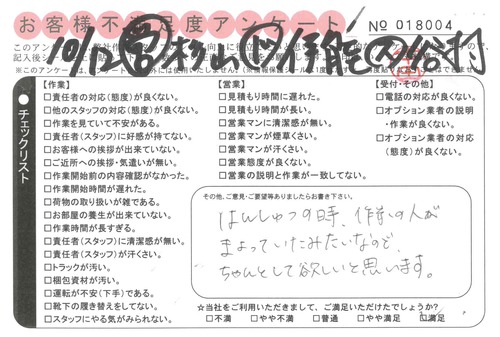 お客様不満足度アンケート
No 018004
【作業】
□責任者の対応(態度)が良くない。
□他のスタッフの対応(態度)が良くない。
□作業を見ていて不安がある。
□責任者(スタッフ)に好感が持てない。
□お客様への挨拶が出来ていない。
□ご近所への挨拶・気遣いが無い。
□作業開始前の内容確認がなかった。
□作業開始時間が遅れた。
□荷物の取り扱いが雑である。
□お部屋の養生が出来ていない。
□作業時間が長すぎる。
□責任者(スタッフ)に清潔感が無い。
□責任者(スタッフ)が汗くさい。
□トラックが汚い。
□梱包資材が汚い。
□運転が不安(下手)である。
□靴下の履き替えをしてない。
□スタッフにやる気がみられない。
【営業】
□見積もり時間に遅れた。
□見積もり時間が長い。
□営業マンに清潔感が無い。
□営業マンが煙草くさい。
□営業マンが汗くさい。
□営業態度が良くない。
□営業の説明と作業が一致してない。
【受付・その他】
□電話の対応が良くない。
□オプション業者の説明
・作業が良くない。
□オプション業者の対応
(態度)が良くない。
チェックリスト
その他、ご意見・ご要望等ありましたらお書き下さい。
はんしゅつの時、作業の人が
まよっていたみたいなので、
ちゃんとして欲しいと思います。
☆当社をご利用いただきまして、ご満足いただけたでしょうか?
□不満 □やや不満 □普通 □やや満足 ☑満足